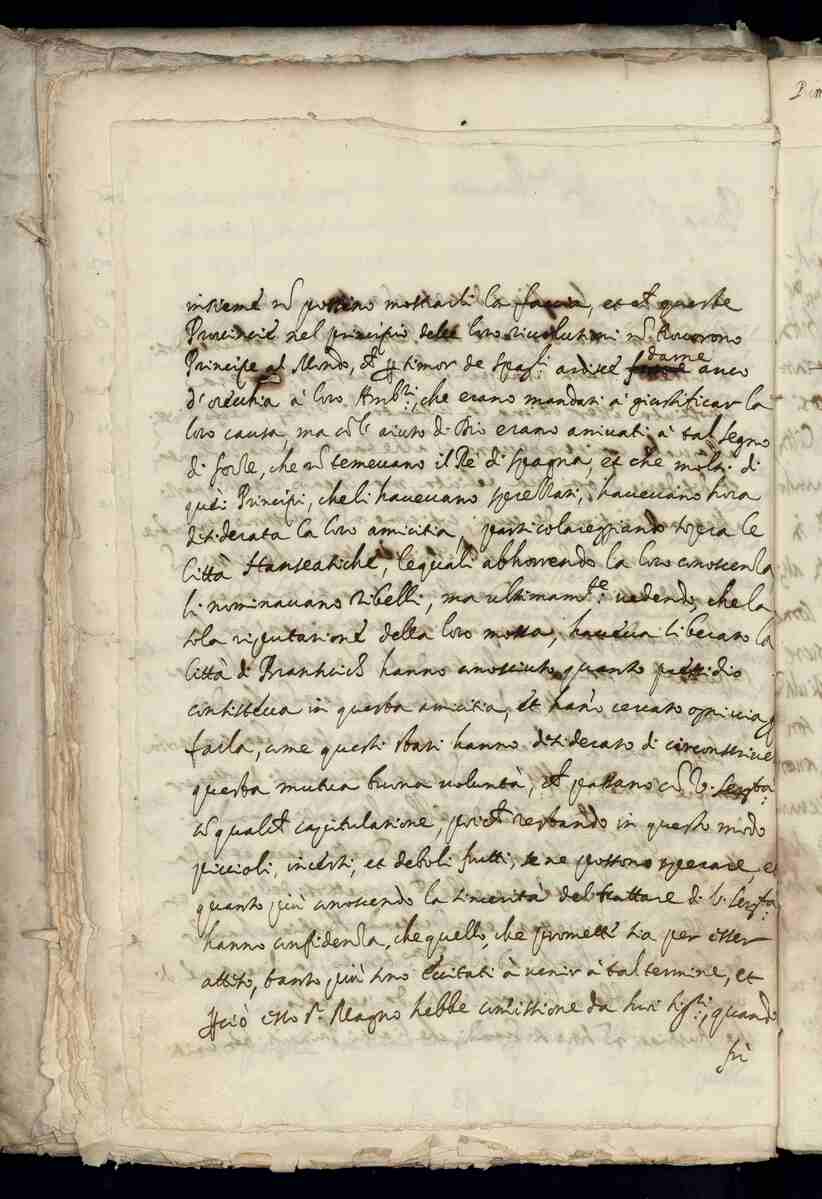 insieme nõ possino mostrarli la faccia, et ch'queste
Provincie nel principio delle loro rivolutioni nõ trovorono
Principe al Mondo, ch' p timor de Spag.li ardisse darne anco
d'orecchia à loro Amb.ri, che erano mandati à giustificar la
loro causa, ma cõ l'aiuto di Dio erano arrivati à tal segno
di forze, che nõ temevano il Rè di Spagna, et che molti di
quei Principi, che li havevano sprezzati, havevano hora
desiderata la loro amicitia, particolareggiando sopra le
Città Hanseatiche, le quali abhorrendo la loro conoscenza
li nominavano ribelli, ma ultimam.te vedendo, che la
sola riputatione della loro mossa, haveva liberato la
Città di Branhuich hanno conosciuto quanto presidio
consisteva in questa amicitia, et hanno cercato ogni via p
farla, come questi stati hanno desiderato di circonscriver
questa mutua buona voluntà, ch' passano cõ V. Ser.tà
cõ qualch' capitulatione, poiche restando in questo modo
piccioli, incerti, et deboli frutti, se ne possono sperare, et
quanto più conoscendo la sincerità del trattare di V. Ser.tà
hanno confidenza, che quello, che promette sia per esser
atteso, tanto più sono eccitati à venir à tal termine, et
p ciò esso S.r Magno hebbe comissione da suoi Sig.ri, quando
fù